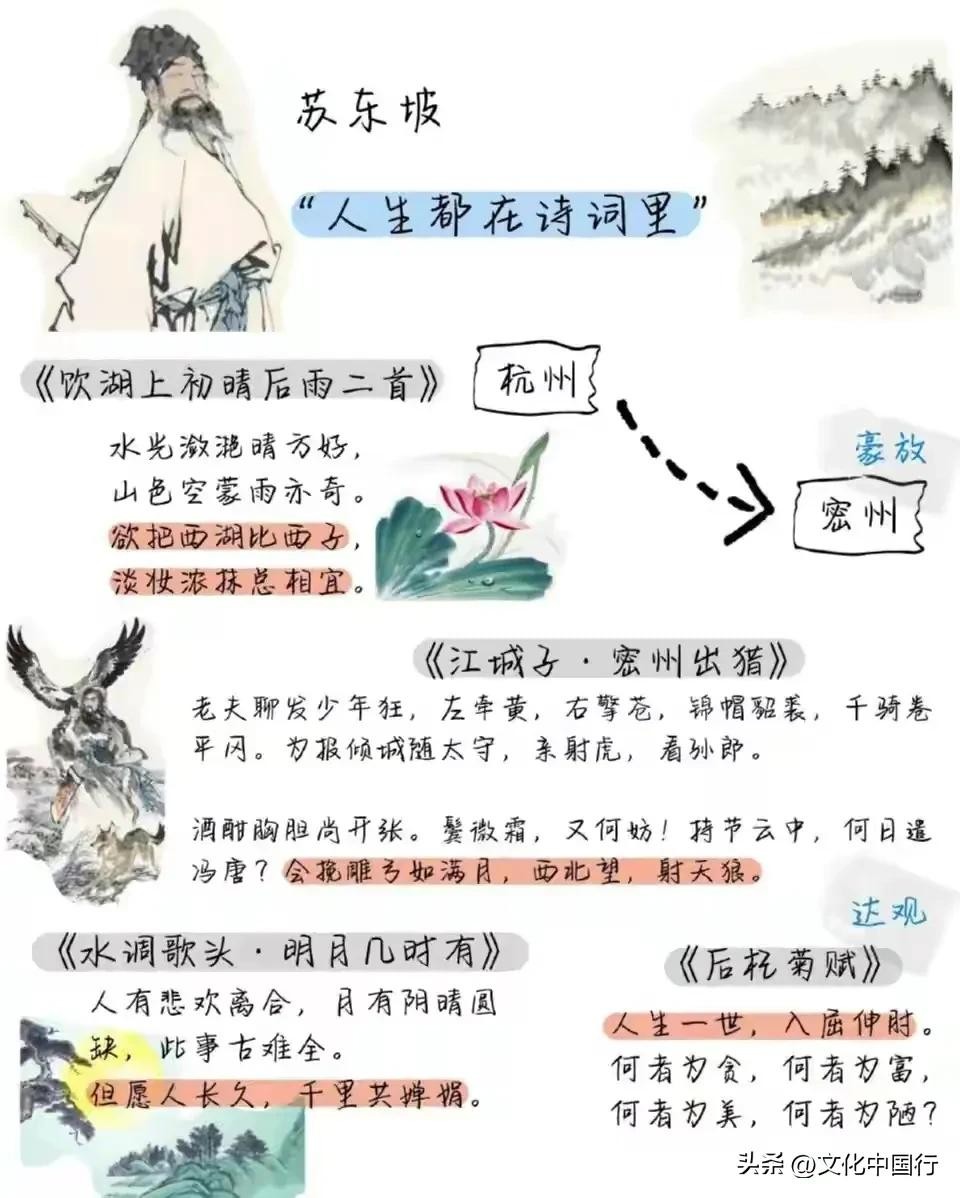 苏东坡
“人生都在诗词里”
《饮湖上初晴后雨二首》
杭州
水光潋滟晴方好，
山色空蒙雨亦奇。
欲把西湖比西子，
淡妆浓抹总相宜。
豪放
密州
《江城子·密州出猎》
老夫聊发少年狂，左牵黄，右擎苍，锦帽貂裘，千骑卷
平冈。为报倾城随太守，亲射虎，看孙郎。
酒酣胸胆尚开张。鬓微霜，又何妨！持节云中，何日遣
冯唐？会挽雕弓如满月，西北望，射天狼。
达观
《水调歌头·明月几时有》
人有悲欢离合，月有阴晴圆
缺，此事古难全。
但愿人长久，千里共婵娟。
《后杞菊赋》
人生一世，入屈伸肘。
何者为贪，何者为富，
何者为美，何者为陋？
头条 @文化中国行